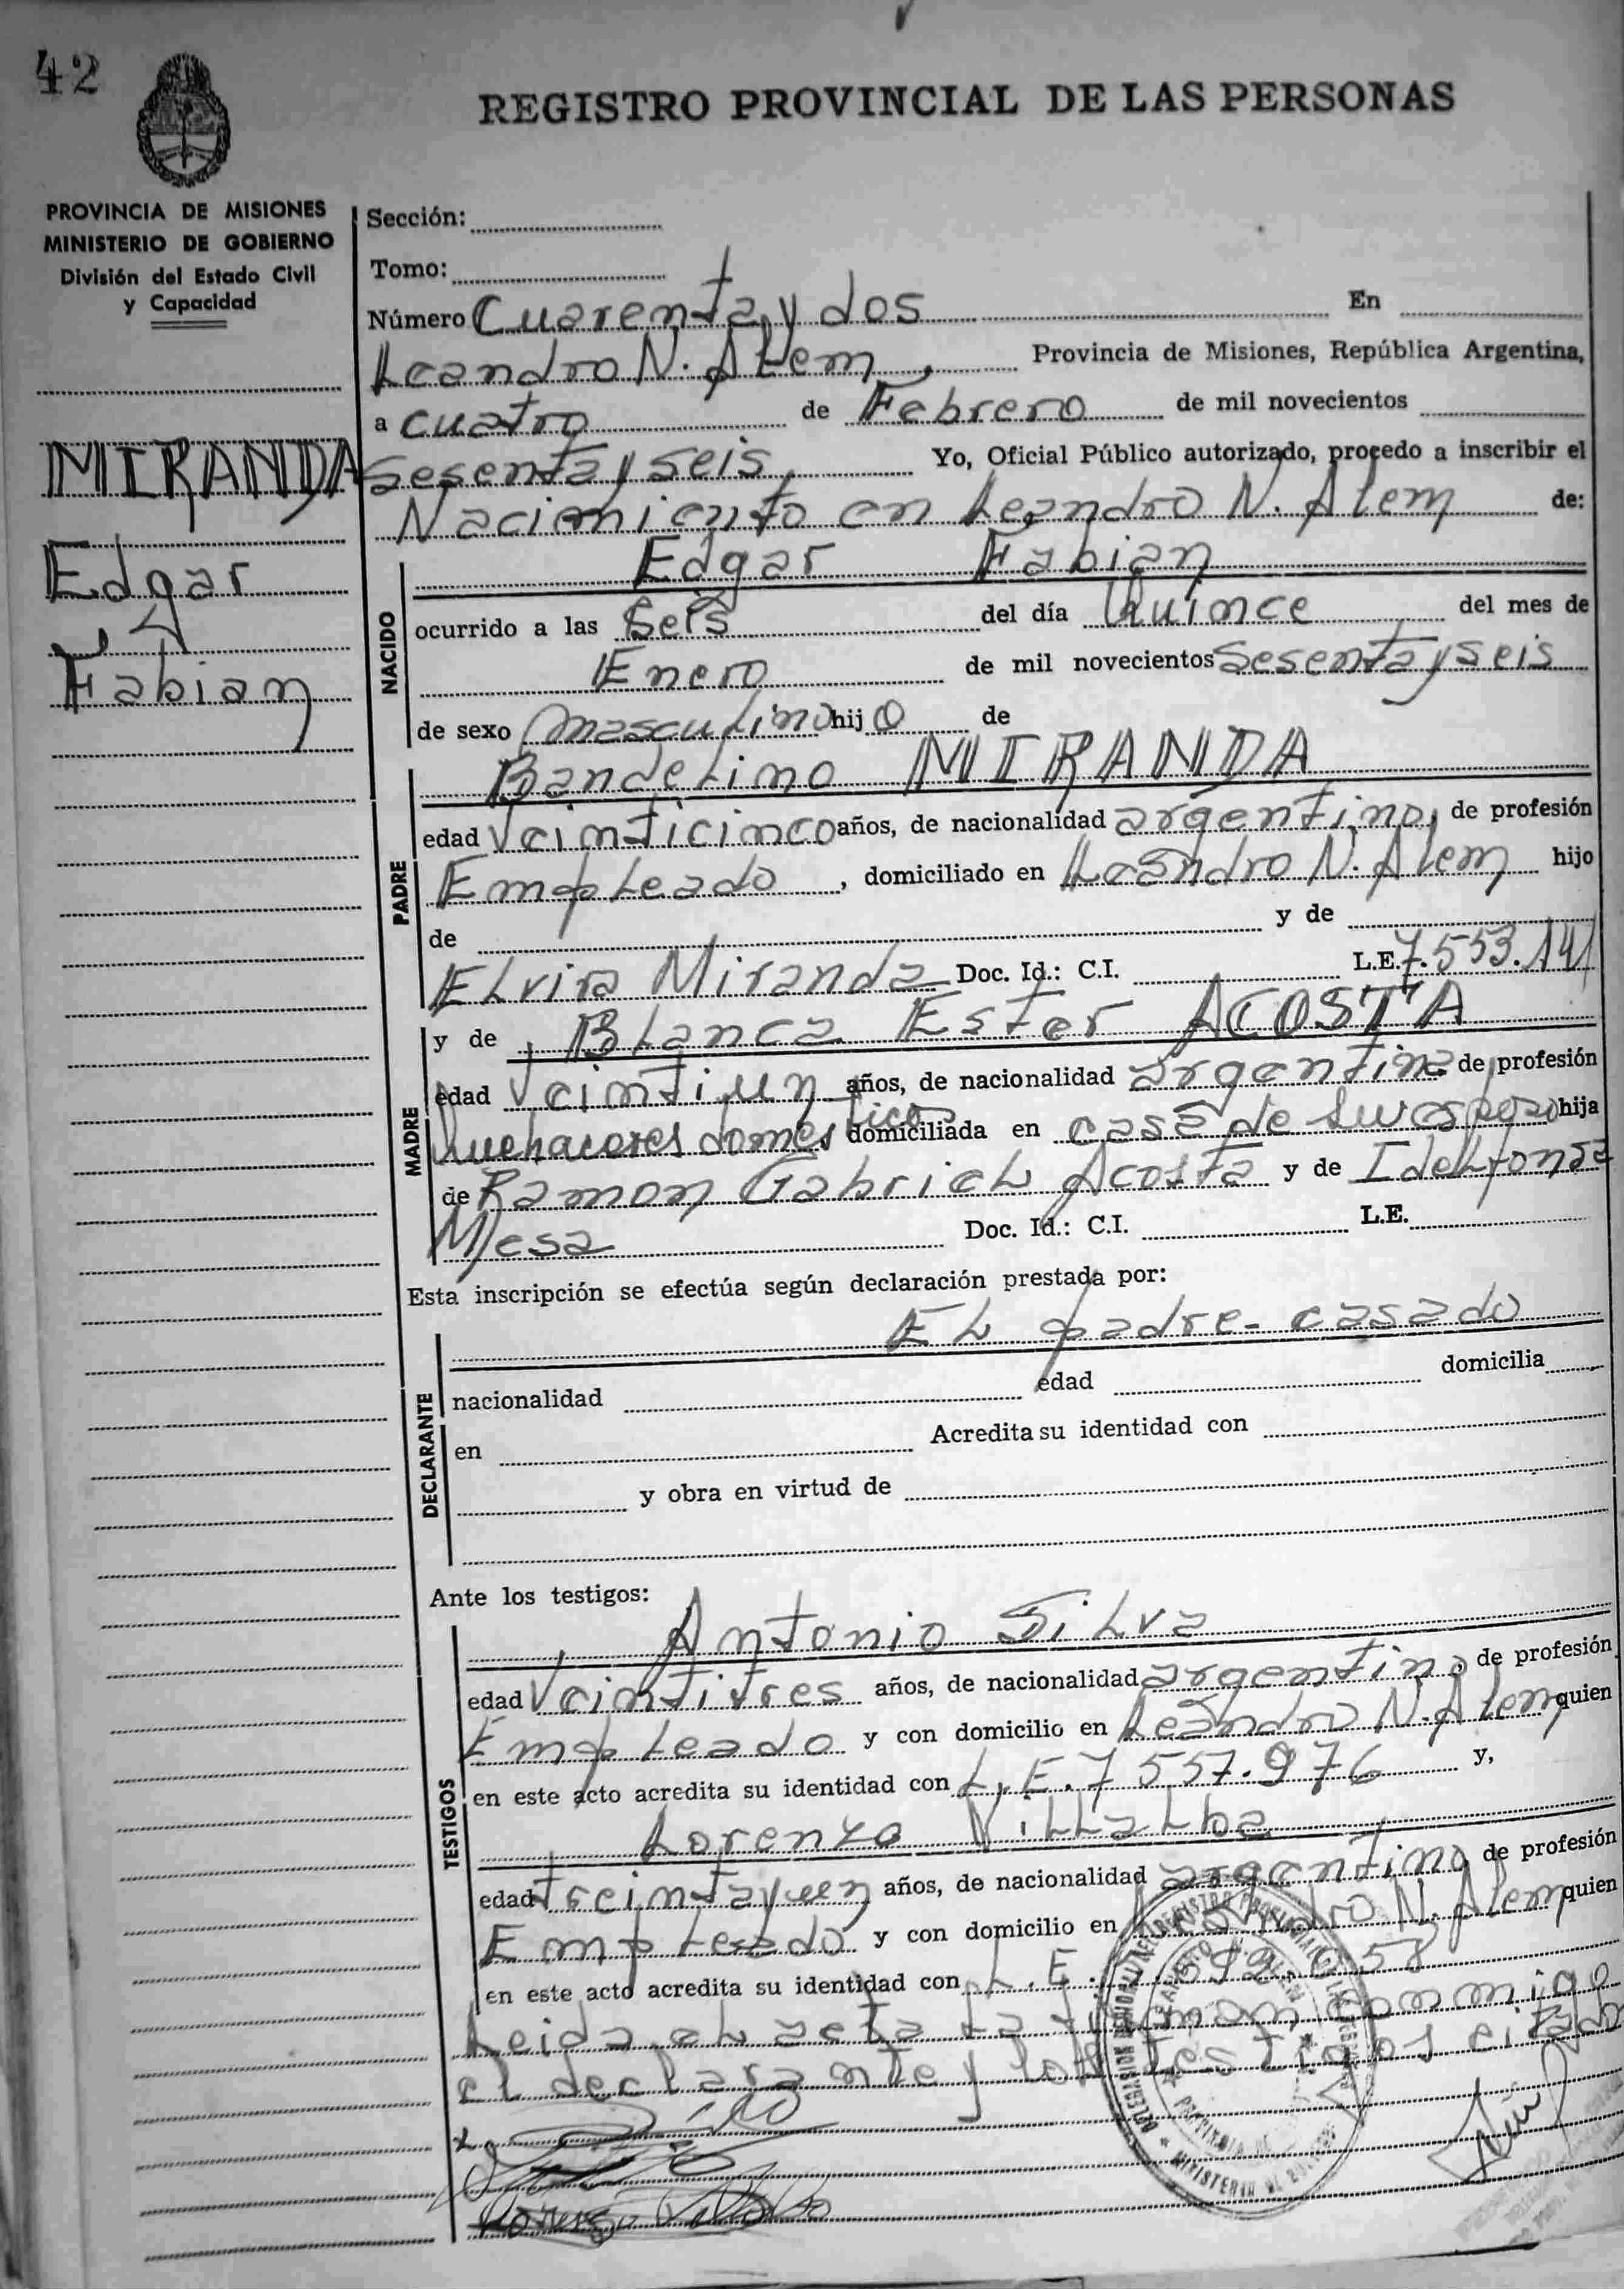 42
REGISTRO PROVINCIAL DE LAS PERSONAS
PROVINCIA DE MISIONES
MINISTERIO DE GOBIERNO
División del Estado Civil
y Capacidad
MIRANDA
Edgar
Fabian
Sección:
Tomo:
Número Cuarenta y dos En
Leandro N. Alem, Provincia de Misiones, República Argentina,
a cuatro de Febrero de mil novecientos
Sesenta y seis Yo, Oficial Público autorizado, procedo a inscribir el
Nacimiento en Leandro N. Alem de:
NACIDO
Edgar Fabian
ocurrido a las Seis del día Quince del mes de
Enero de mil novecientos Sesenta y seis
de sexo masculino hijo de
PADRE
Bandelino MIRANDA
edad Veinticinco años, de nacionalidad argentino, de profesión
Empleado, domiciliado en Leandro N. Alem hijo
de y de
Elvira Miranda Doc. Id.: C.I. L.E. 7.553.141
MADRE
y de Blanca Ester ACOSTA
edad Veintiun años, de nacionalidad argentina de profesión
Quehaceres domesticos domiciliada en casa de su esposo hija
de Ramon Gabriel Acosta y de Idelfonsa
Mesa Doc. Id.: C.I. L.E.
Esta inscripción se efectúa según declaración prestada por:
DECLARANTE
El padre- casado
nacionalidad edad domicilia
en Acredita su identidad con
y obra en virtud de
Ante los testigos:
TESTIGOS
Antonio Silva
edad Veintitres años, de nacionalidad argentino, de profesión
Empleado y con domicilio en Leandro N. Alem quien
en este acto acredita su identidad con L.E. 7557.976 y,
Lorenzo Villalba
edad treinta y un años, de nacionalidad argentino, de profesión
Empleado y con domicilio en Leandro N. Alem quien
en este acto acredita su identidad con L.E.
Leida el acta la firman conmigo
el declarante y los testigos citado
Lorenzo Villalba